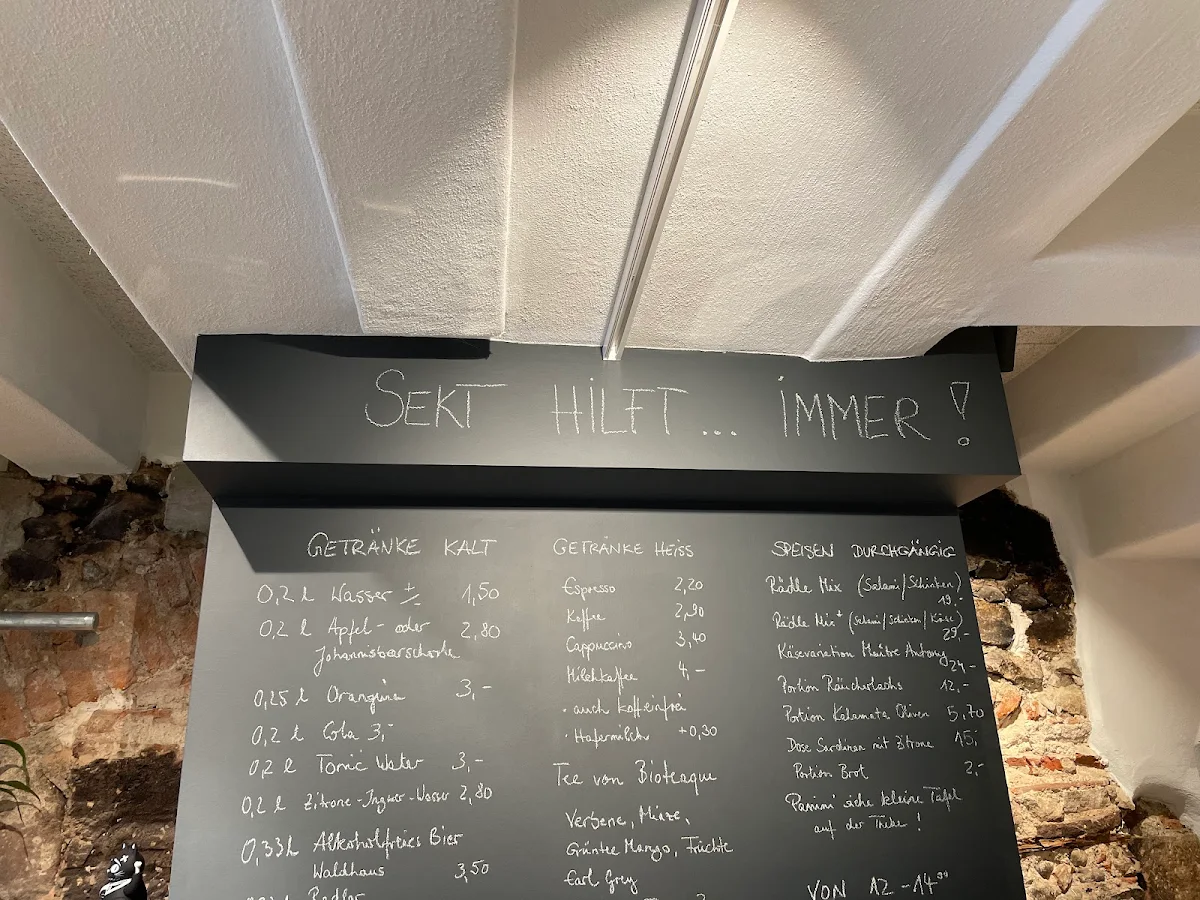 SEKT HILFT ... IMMER !
GETRÄNKE KALT
0,2 l Wasser +/- 1,50
0,2 l Apfel- oder 2,80
Johannisbeerschorle
0,25 l Orangina 3,-
0,2 l Cola 3,-
0,2 l Tonic Water 3,-
0,2 l Zitrone-Ingwer-Wasser 2,80
0,33 l Alkoholfreies Bier
Waldhaus 3,50
Radler
GETRÄNKE HEISS
Espresso 2,20
Kaffee 2,90
Cappuccino 3,40
Milchkaffee 4,-
· auch koffeinfrei
· Hafermilch +0,30
Tee von Bioteaque
Verbene, Minze,
Grüntee Mango, Früchte
Earl Grey
SPEISEN DURCHGÄNGIG
Rädle Mix (Salami/Schinken)
19.-
Rädle Mix+ (Salami/Schinken/Käse)
29,-
Käsevariation Maître Antony
24,-
Portion Räucherlachs 12,-
Portion Kalamata Oliven 5,70
Dose Sardinen mit Zitrone 15,-
Portion Brot 2,-
Panini siehe kleine Tafel
auf der Theke !
VON 12 - 14⁰⁰